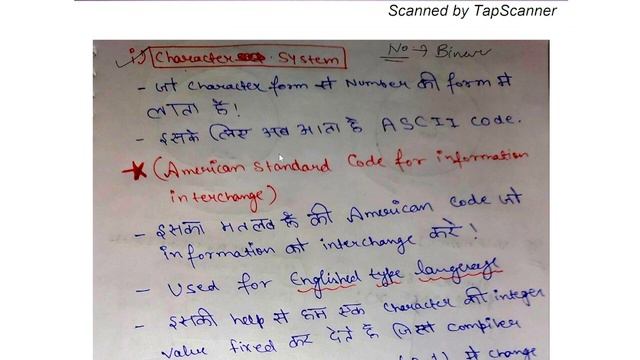 Scanned by TapScanner
No → Binary
i) Character System
- जो character form से Number की form में
लाता है!
- इसके लिए अब आता है ASCII code.
* (American Standard Code for information
interchange)
- इसका मतलब है की American code जो
information को interchange करे!
- Used for Englished type language
- इसकी help से हम एक character की integer
value fixed कर देते है जिसे compiler
में change